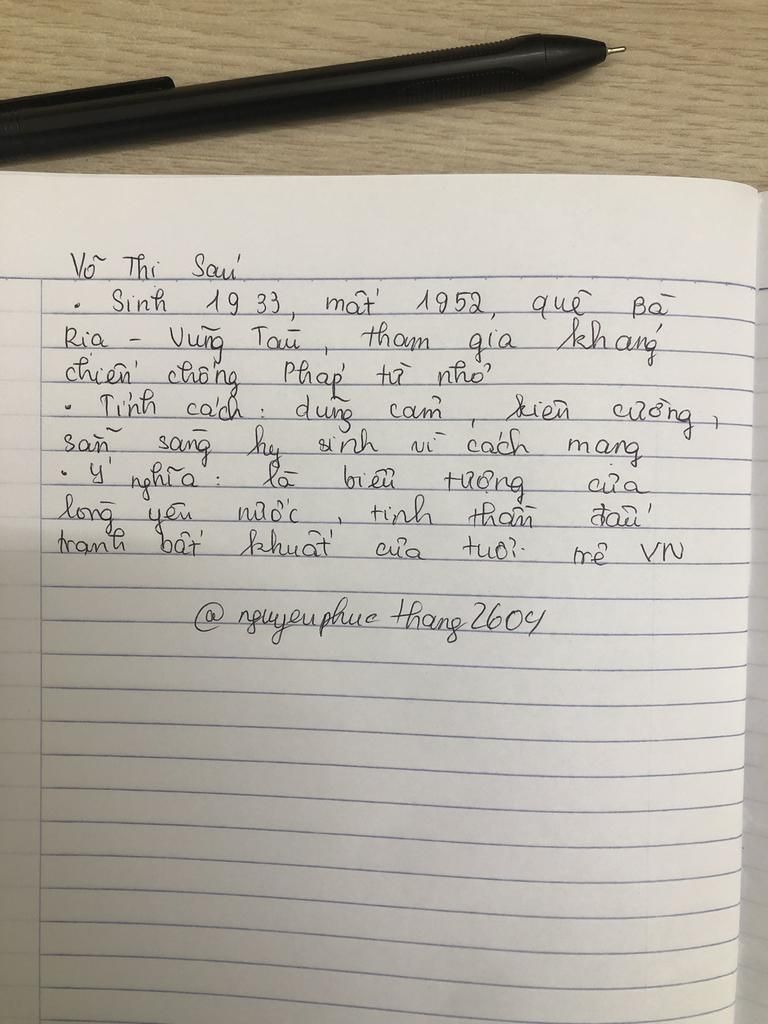 Võ Thị Sáu
• Sinh 1933, mất 1952, quê Bà
Rịa - Vũng Tàu, tham gia kháng
chiến chống Pháp từ nhỏ
• Tính cách: dũng cảm, kiên cường,
sẵn sàng hy sinh vì cách mạng
• Ý nghĩa: là biểu tượng của
lòng yêu nước, tinh thần đấu
tranh bất khuất của tuổi trẻ VN
@nguyenphucthang2604